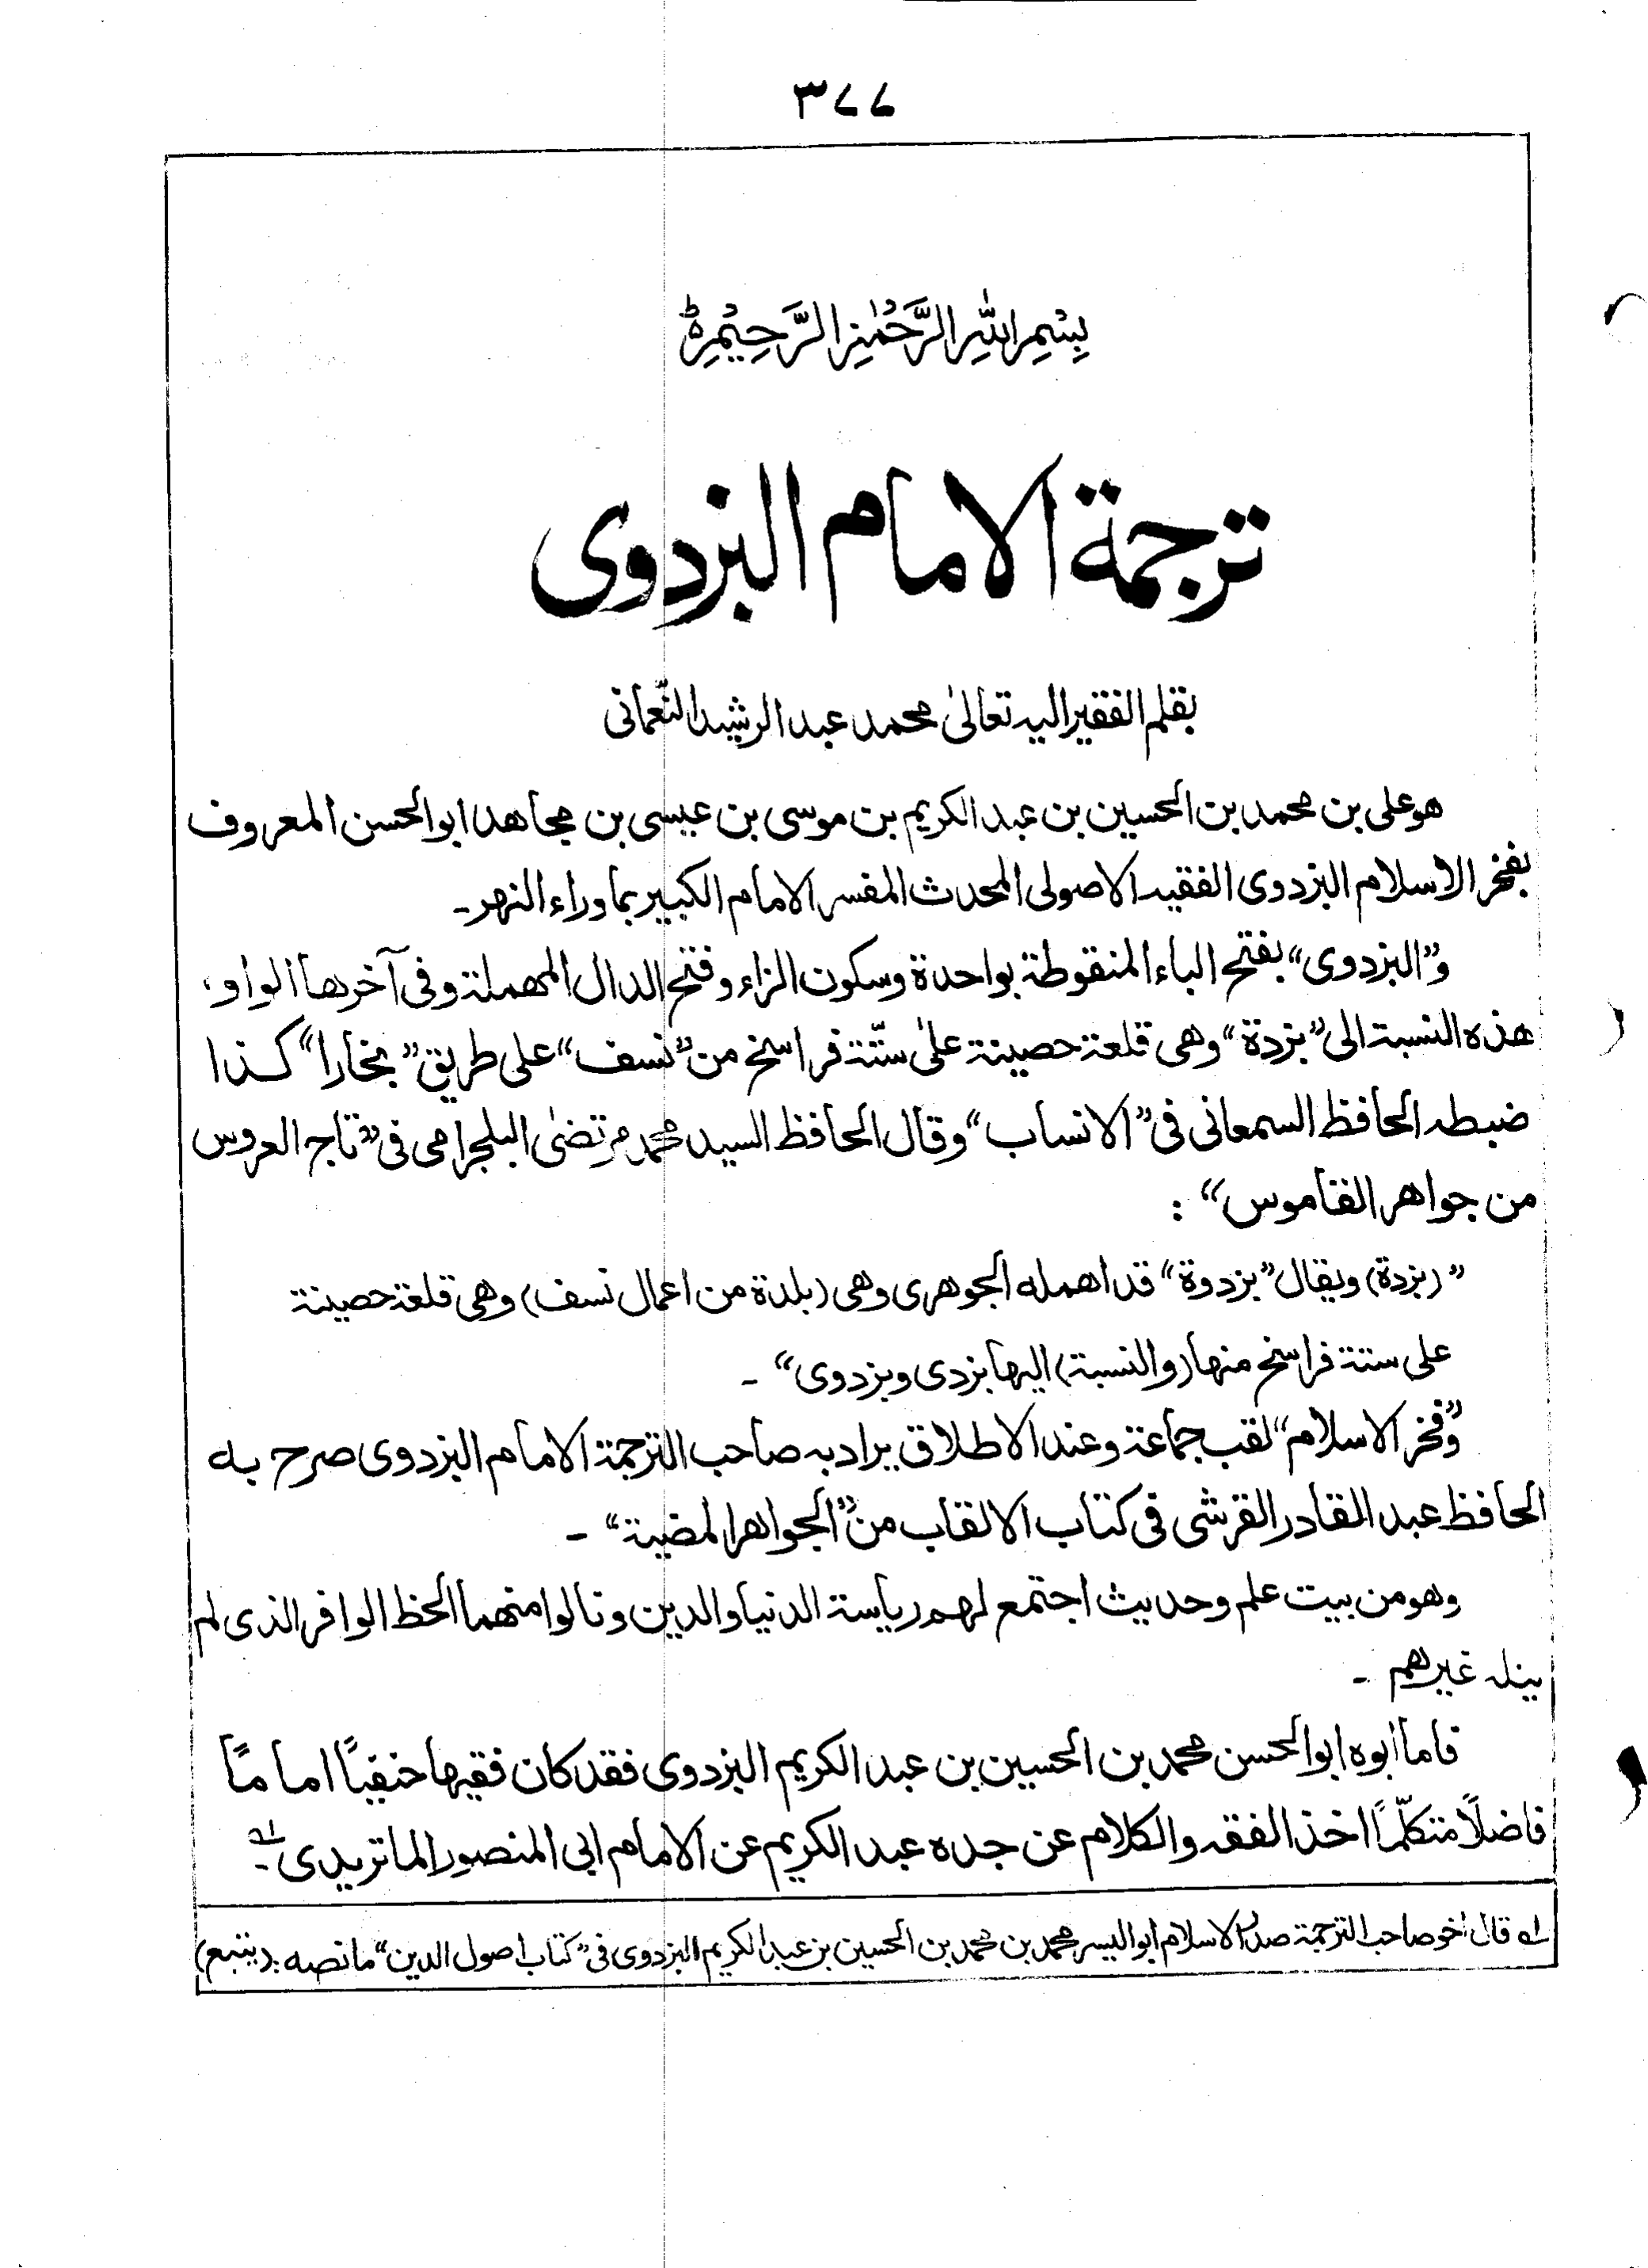 ٣٧٧
بِسْمِ اللهِ الرَّحْمٰنِ الرَّحِيْمِ ؕ
ترجمة الامام البزدوى
بقلم الفقير اليه تعالىٰ محمد عبد الرشيد النّعمانى
هو على بن محمد بن الحسين بن عبد الكريم بن موسى بن عيسى بن مجاهد ابو الحسن المعروف
بفخر الاسلام البزدوى الفقيه الاصولى المحدث المفسر الامام الكبير بما وراء النهر۔
و”البزدوى“ بفتح الباء المنقوطة بواحدة وسكون الزاء وفتح الدال المهملة وفى آخرها الواو،
هذه النسبة الى ”بزدة“ وهى قلعة حصينة علىٰ ستّة فراسخ من ”نسف“ على طريق ”بخارا“ كذا
ضبطه الحافظ السمعانى فى ”الانساب“ وقال الحافظ السيد محمد مرتضىٰ البلجرامى فى ”تاج العروس
من جواهر القاموس“ :
”(بزدة) ويقال ”بزدوة“ قد اهمله الجوهرى وهى (بلدة من اعمال نسف) وهى قلعة حصينة
على ستة فراسخ منها (والنسبة) اليها بزدى وبزدوى“ ۔
و”فخر الاسلام“ لقب جماعة وعند الاطلاق يراد به صاحب الترجمة الامام البزدوى صرح به
الحافظ عبد القادر القرشى فى كتاب الالقاب من ”الجواهر المضية“ ۔
وهو من بيت علم وحديث اجتمع لهم رياسة الدنيا والدين ونالوا منهما الحظ الوافر الذى لم
ينله غيرهم ۔
فاما ابوه ابو الحسن محمد بن الحسين بن عبد الكريم البزدوى فقد كان فقيها حنفيًا امامًا
فاضلًا متكلّمًا اخذ الفقه والكلام عن جده عبد الكريم عن الامام ابى المنصور الماتريدى ـ له
له قال اخو صاحب الترجمة صدر الاسلام ابو اليسر محمد بن محمد بن الحسين بن عبد الكريم البزدوى فى ”كتاب اصول الدين“ ما نصه : (يتبع)